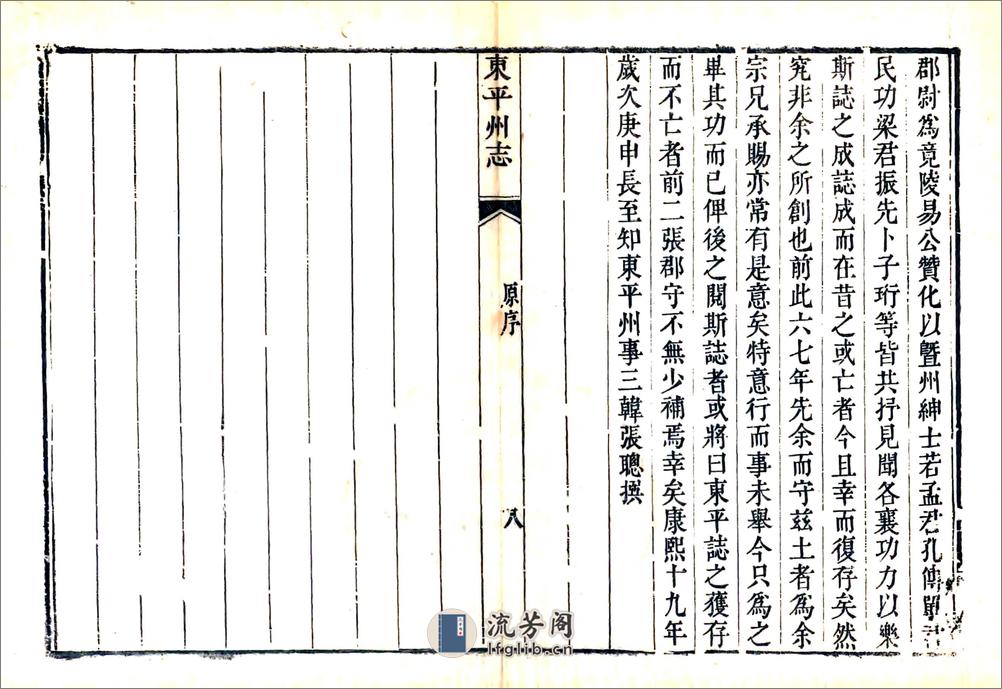 郡尉為竟陵易公贊化以暨州紳士若孟君孔傳單君
民功梁君振先卜子珩等皆共抒見聞各襄功力以樂
斯誌之成誌成而在昔之或亡者今且幸而復存矣然
究非余之所創也前此六七年先余而守兹土者為余
宗兄承賜亦常有是意矣特意行而事未舉今只為之
畢其功而已俾後之閱斯誌者或將曰東平誌之獲存
而不亡者前二張郡守不無少補焉幸矣康熙十九年
歲次庚申長至知東平州事三韓張聰撰
東平州志
原序
八
流芳阁
lfglib.cn